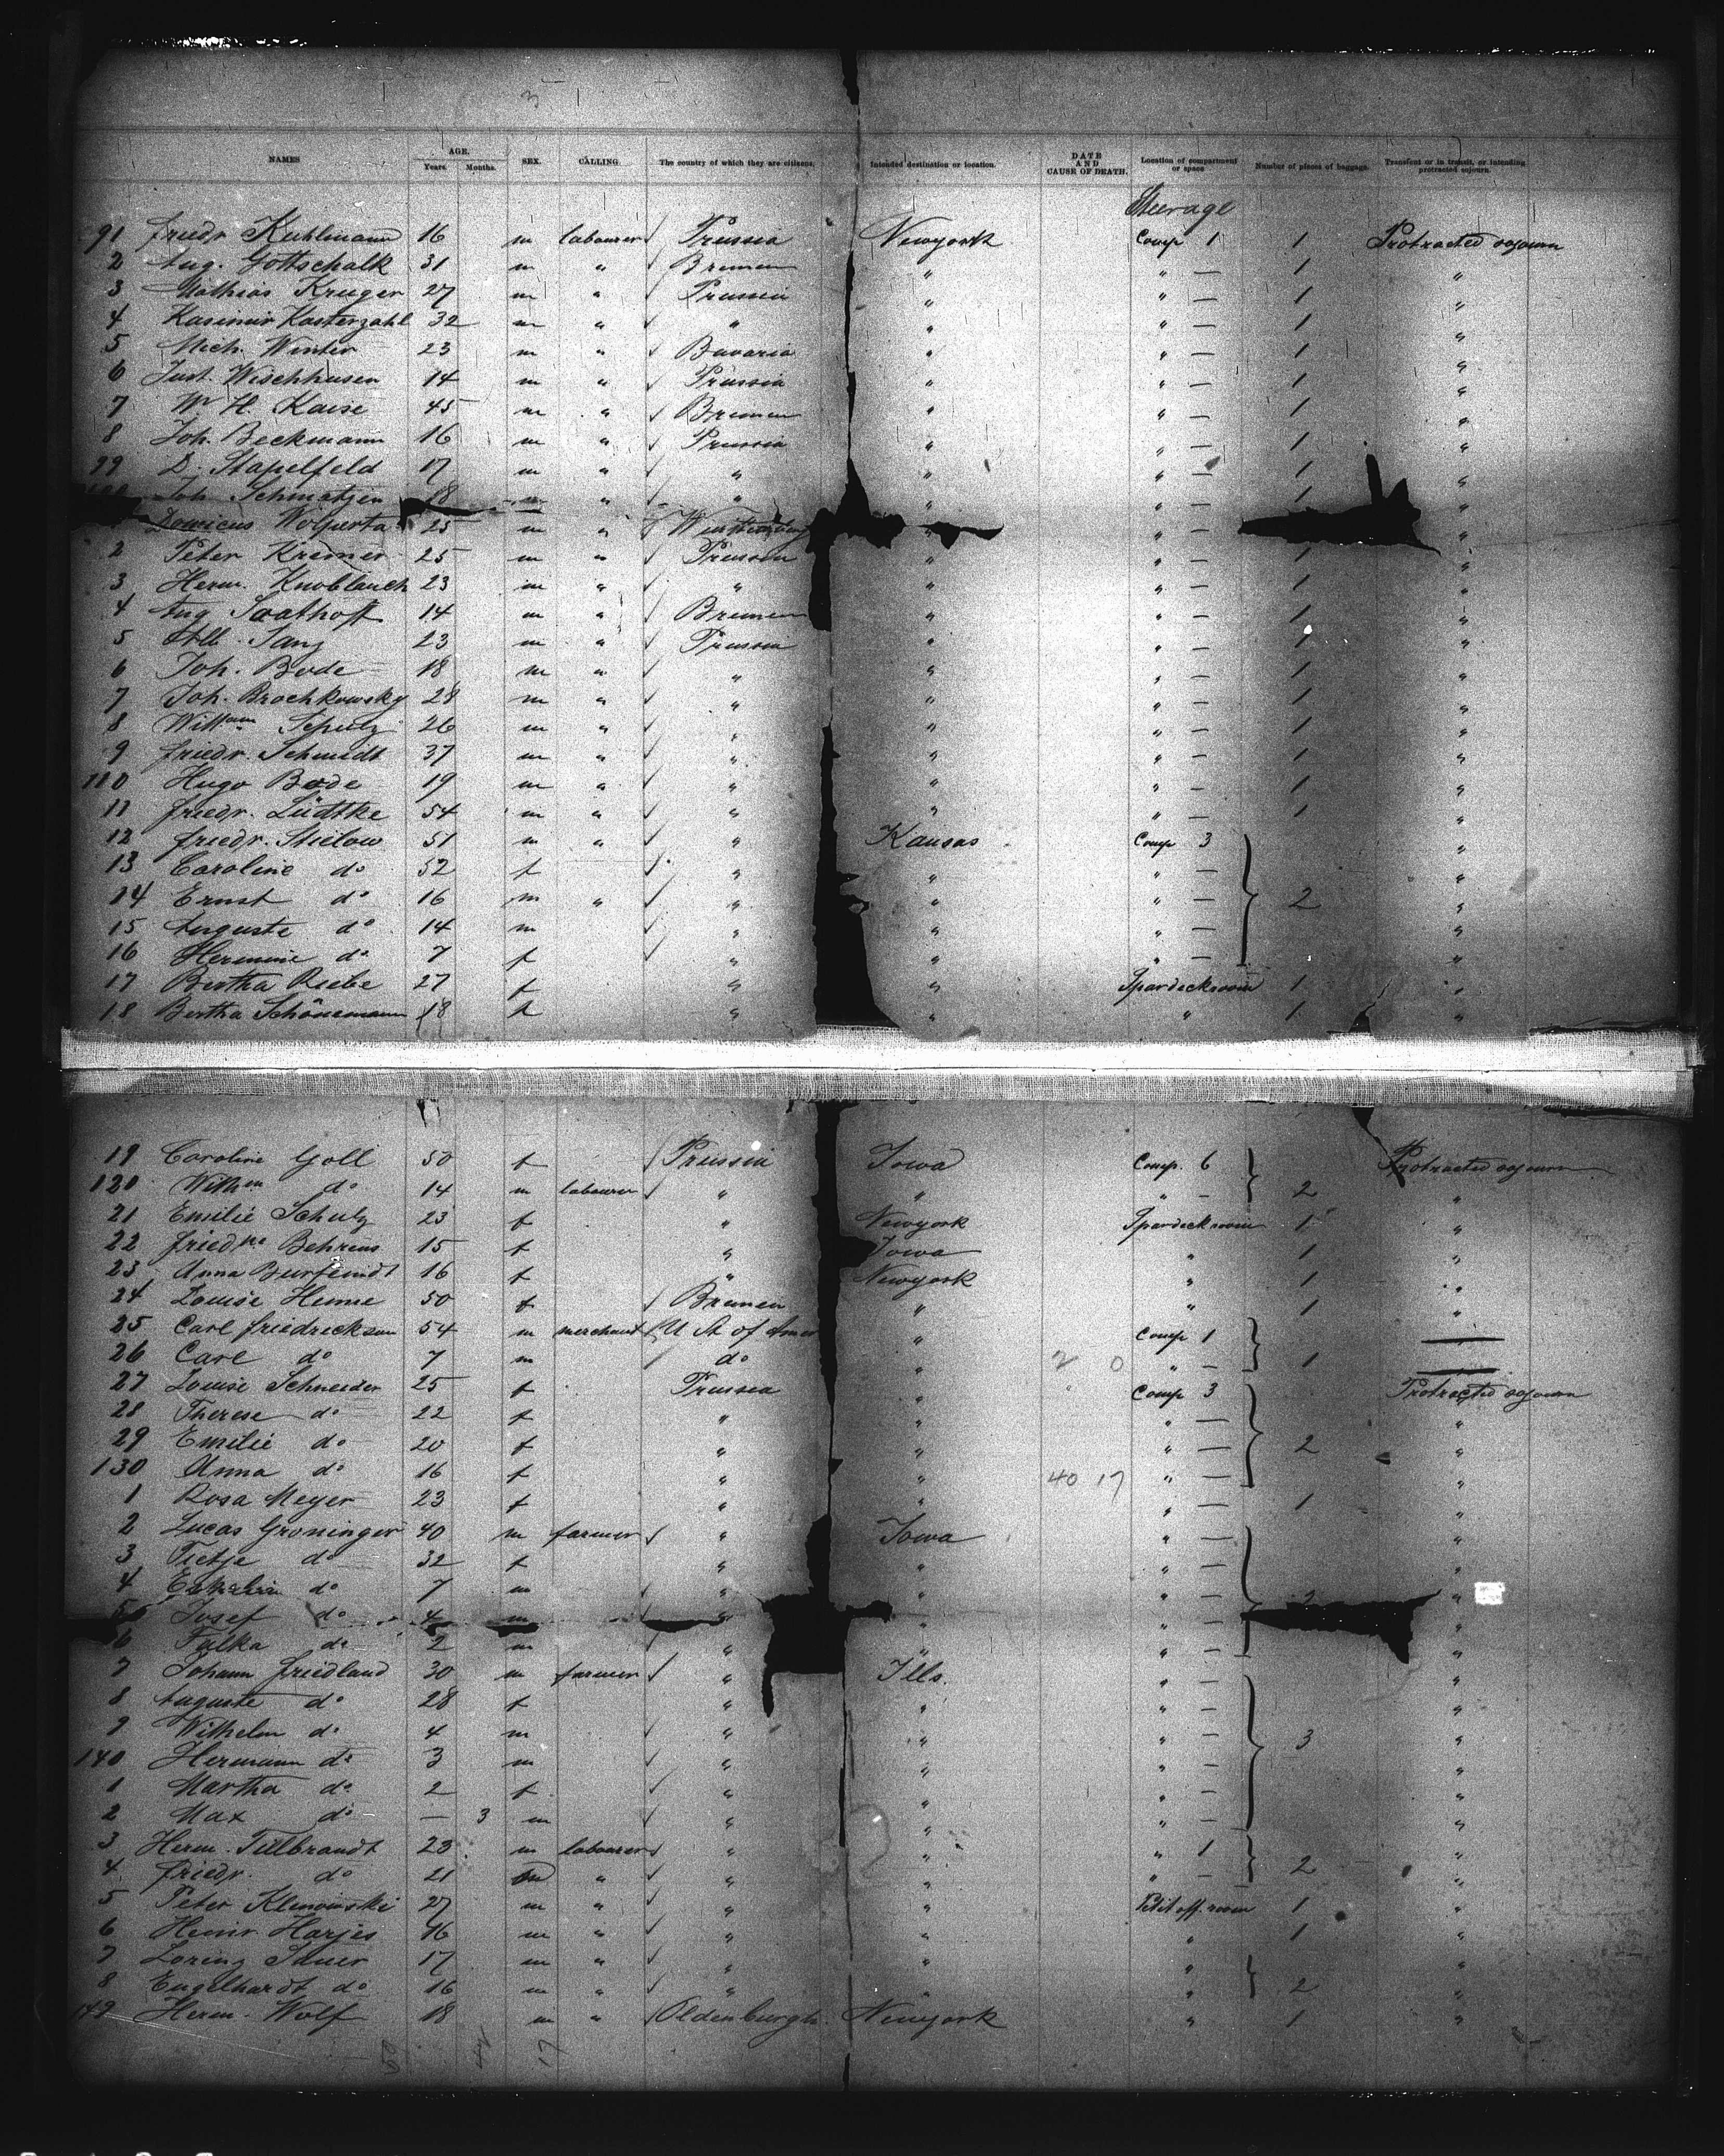 3
NAMES AGE. Years. Months. SEX. CALLING. The country of which they are citizens. Intended destination or location. DATE AND CAUSE OF DEATH. Location of compartment or space Number of pieces of baggage. Transient or in transit, or intending protracted sojourn.
Steerage
91 Friedr Kuhlmann 16 m labourer Prussia Newyork Comp 1 1 Protracted sojourn
2 Aug. Gottschalk 31 m " Bremen " " — 1 "
3 Mathias Kruger 27 m " Prussia " " — 1 "
4 Kasimir Kasterzahl 32 m " " " " — 1 "
5 Mich. Winter 23 m " Bavaria " " — 1 "
6 Just. Wischhusen 14 m " Prussia " " — 1 "
7 Wm H. Kaise 45 m " Bremen " " — 1 "
8 Joh. Beckmann 16 m " Prussia " " — 1 "
99 D. Stapelfeld 17 m " " " " — 1 "
100 Joh. Schmatjen 18 m " " " " — 1 "
Wolperta 25 m " Wurttemberg " " — "
2 Peter Kremer 25 m " Prussia " " — 1 "
3 Herm. Knoblauch 23 m " " " " — 1 "
4 Aug Saathoff 14 m " Bremen " " — 1 "
5 Alb. Tanz 23 m " Prussia " " — 1 "
6 Joh. Bode 18 m " " " " — 1 "
7 Joh. Brochkowsky 28 m " " " " — 1 "
8 Willam Schulz 26 m " " " " — 1 "
9 Friedr. Schmidt 37 m " " " " — 1 "
110 Hugo Bode 19 m " " " " — 1 "
11 Friedr. Lüdtke 54 m " " " " — 1 "
12 Friedr. Stielow 51 m " " Kansas Comp 3 "
13 Caroline do 52 f " " " — "
14 Ernst do 16 m " " " " — 2 "
15 Auguste do 14 m " " " — "
16 Hermine do 7 f " " " — "
17 Bertha Riebe 27 f " " Spardeckroom 1 "
18 Bertha Schönemann 18 f " " " 1 "
19 Caroline Goll 50 f Prussia Iowa Comp. 6 Protracted sojourn
120 Wilhm do 14 m labourer " " " — 2 "
21 Emilie Schulz 23 f " Newyork Spardeckroom 1 "
22 Friedke Behrens 15 f " Iowa " 1 "
23 Anna Burfeindt 16 f " Newyork " 1 "
24 Louise Heine 50 f Bremen " " 1 "
25 Carl Friedrickson 54 m merchant U St of Amer " Comp 1 —
26 Carl do 7 m do " 2 0 " — 1 —
27 Louise Schneider 25 f Prussia " Comp 3 Protracted sojourn
28 Therese do 22 f " " " — "
29 Emilie do 20 f " " " — 2 "
130 Anna do 16 f " " 40 17 " — "
1 Rosa Meyer 23 f " " " — 1 "
2 Lucas Groninger 40 m farmer " Iowa " — "
3 Tietje do 32 f " " " — "
4 do 7 m " " " — 2 "
5 Josef do 4 m " " " — "
6 Fulka do 2 m " " " — "
7 Johann Friedland 30 m farmer " Ills. " — "
8 Auguste do 28 f " " " — "
9 Wilhelm do 4 m " " " — 3 "
140 Hermann do 3 m " " " — "
1 Martha do 2 f " " " — "
2 Max do — 3 m " " " — "
3 Herm. Tillbrandt 23 m labourer " " " 1 "
4 Friedr. do 21 m " " " " — 2 "
5 Peter Klewinski 27 m " " " Petit off. room 1 "
6 Heinr. Harjes 16 m " " " " 1 "
7 Lorinz Sauer 17 m " " " " "
8 Engelhardt do 16 m " " " 2 "
149 Herm. Wolf 18 m " Oldenburgh. Newyork " 1 "